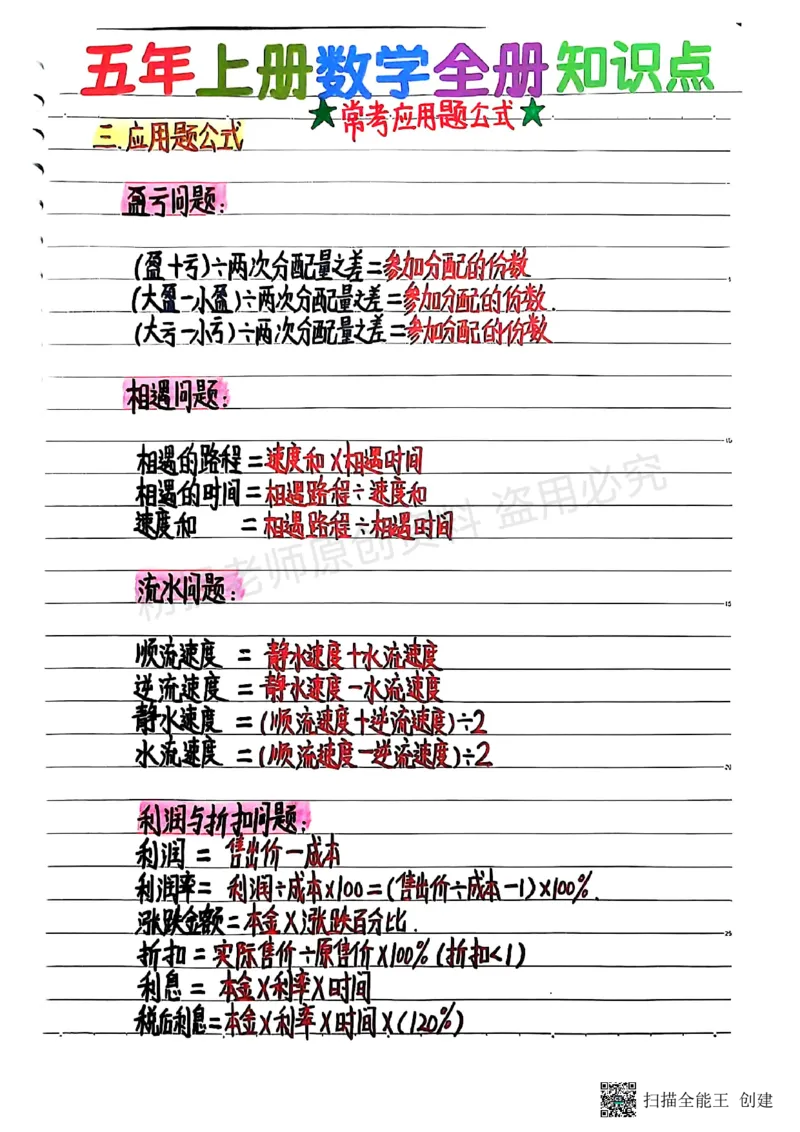 五年上册数学全册知识点
★常考应用题公式★
三.应用题公式
盈亏问题:
(盈+亏)÷两次分配量之差=参加分配的份数
(大盈-小盈)÷两次分配量之差=参加分配的份数.
(大亏-小亏)÷两次分配量之差=参加分配的份数
5
相遇问题:
10
相遇的路程=速度和×相遇时间
相遇的时间=相遇路程÷速度和
速度和 =相遇路程÷相遇时间
老师原创资料 盗用必究
流水问题:
15
顺流速度 = 静水速度+水流速度
逆流速度 =静水速度-水流速度
静水速度 =(顺流速度+逆流速度)÷2
水流速度 =(顺流速度-逆流速度)÷2
20
利润与折扣问题:
利润 = 售出价-成本
利润率= 利润÷成本×100=(售出价÷成本-1)×100%.
涨跌金额=本金×涨跌百分比.
25
折扣=实际售价÷原售价×100%(折扣<1)
利息= 本金×利率×时间
税后利息=本金×利率×时间×(120%)
扫描全能王 创建